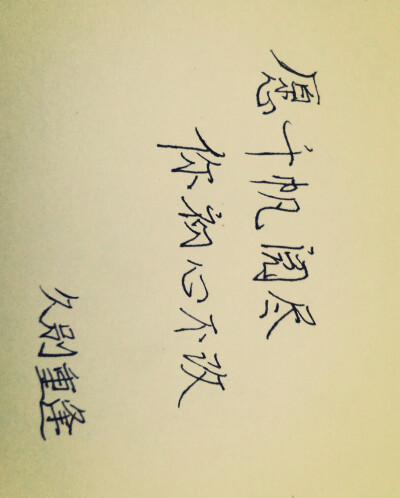 愿千帆阅尽
你初心不改
久别重逢